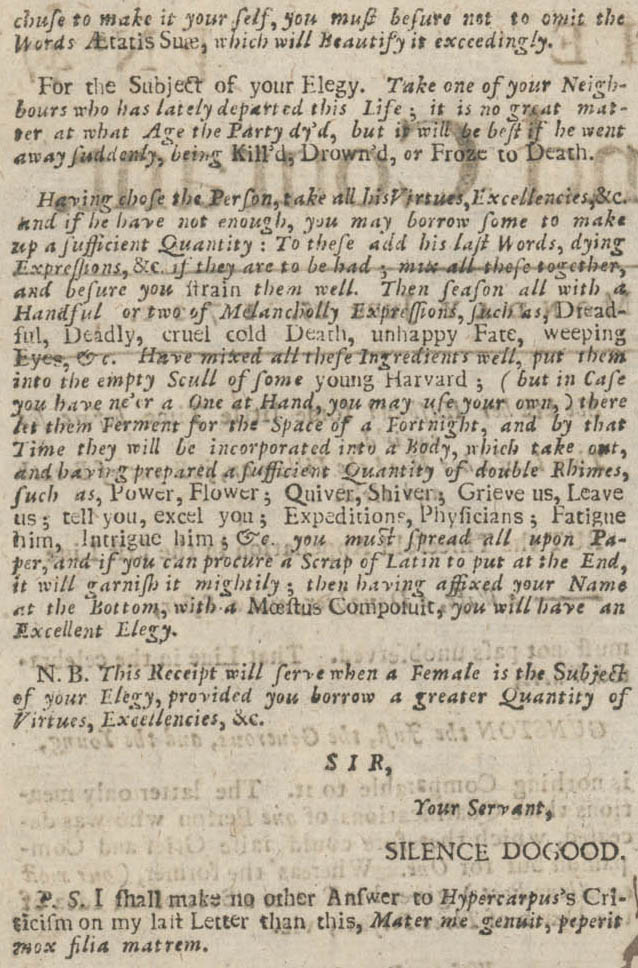 chuſe to make it your ſelf, you muſt beſure not to omit the
Words Ætatis Suæ, which will Beautify it exceedingly.
For the Subject of your Elegy. Take one of your Neigh-
bours who has lately departed this Life ; it is no great mat-
ter at what Age the Party dy'd, but it will be beſt if he went
away ſuddenly, being Kill'd, Drown'd, or Froze to Death.
Having choſe the Perſon, take all his Virtues, Excellencies, &c.
and if he have not enough, you may borrow ſome to make
up a ſufficient Quantity : To theſe add his laſt Words, dying
Expreſſions, &c. if they are to be had ; mix all theſe together,
and beſure you ſtrain them well. Then ſeaſon all with a
Handful or two of Melancholly Expreſſions, ſuch as, Dread-
ful, Deadly, cruel cold Death, unhappy Fate, weeping
Eyes, &c. Have mixed all theſe Ingredients well, put them
into the empty Scull of ſome young Harvard ; (but in Caſe
you have ne'er a One at Hand, you may uſe your own,) there
let them Ferment for the Space of a Fortnight, and by that
Time they will be incorporated into a Body, which take out,
and having prepared a ſufficient Quantity of double Rhimes,
ſuch as, Power, Flower ; Quiver, Shiver ; Grieve us, Leave
us ; tell you, excel you ; Expeditions, Phyſicians ; Fatigue
him, Intrigue him ; &c. you muſt ſpread all upon Pa-
per, and if you can procure a Scrap of Latin to put at the End,
it will garniſh it mightily ; then having affixed your Name
at the Bottom, with a Mœſtus Compoſuit, you will have an
Excellent Elegy.
N. B. This Receipt will ſerve when a Female is the Subject
of your Elegy, provided you borrow a greater Quantity of
Virtues, Excellencies, &c.
SIR,
Your Servant,
SILENCE DOGOOD.
P. S. I ſhall make no other Anſwer to Hypercarpus's Cri-
ticiſm on my laſt Letter than this, Mater me genuit, peperit
mox filia matrem.